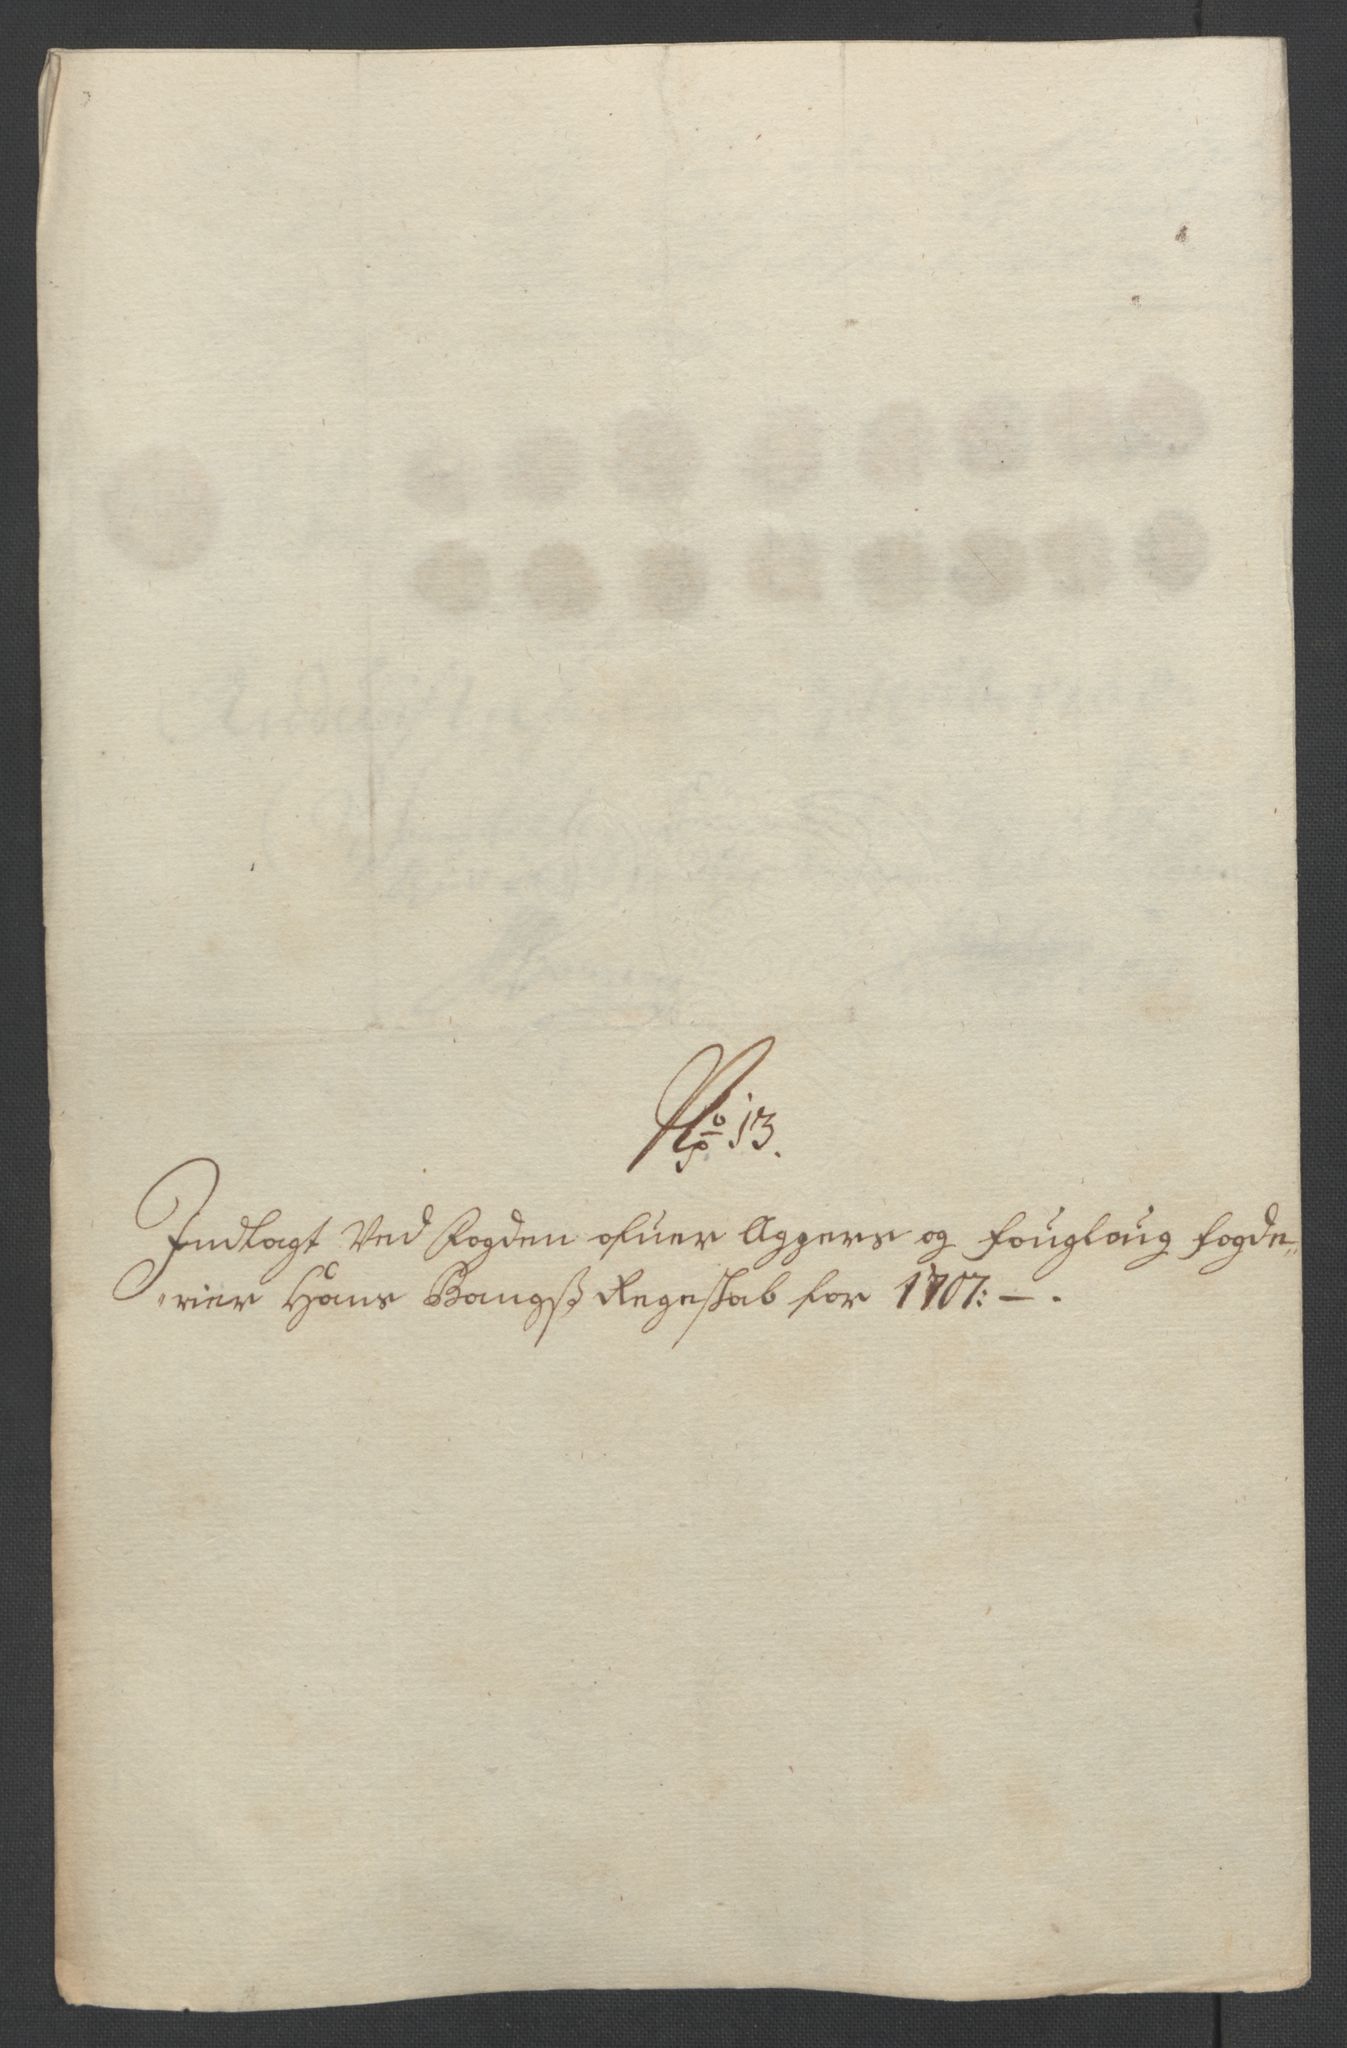 No 13.
Indlagt Ved fogden ofuer Aggers og fougloug fogde„
„rier Hans Bangß Regeskab for 1707: — .